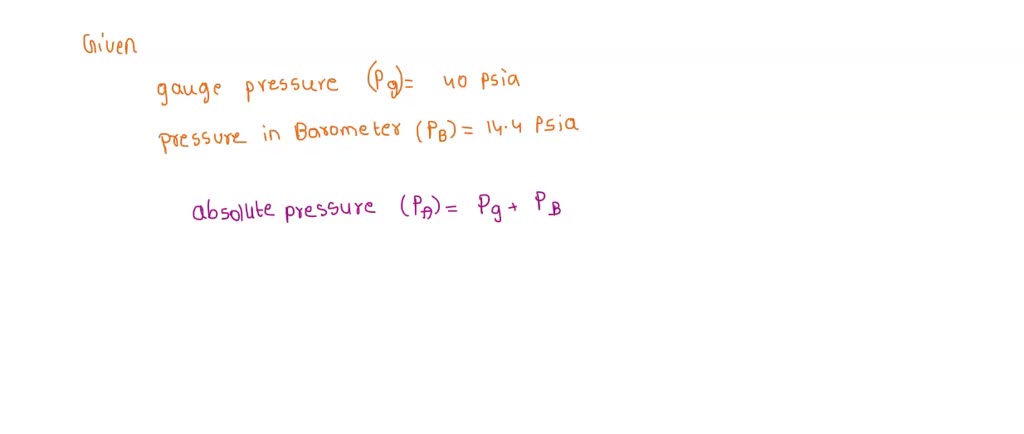 Given
gauge pressure (Pg)= 40 Psia
pressure in Barometer (PB) = 14.4 Psia
absolute pressure (PA) = Pg + PB